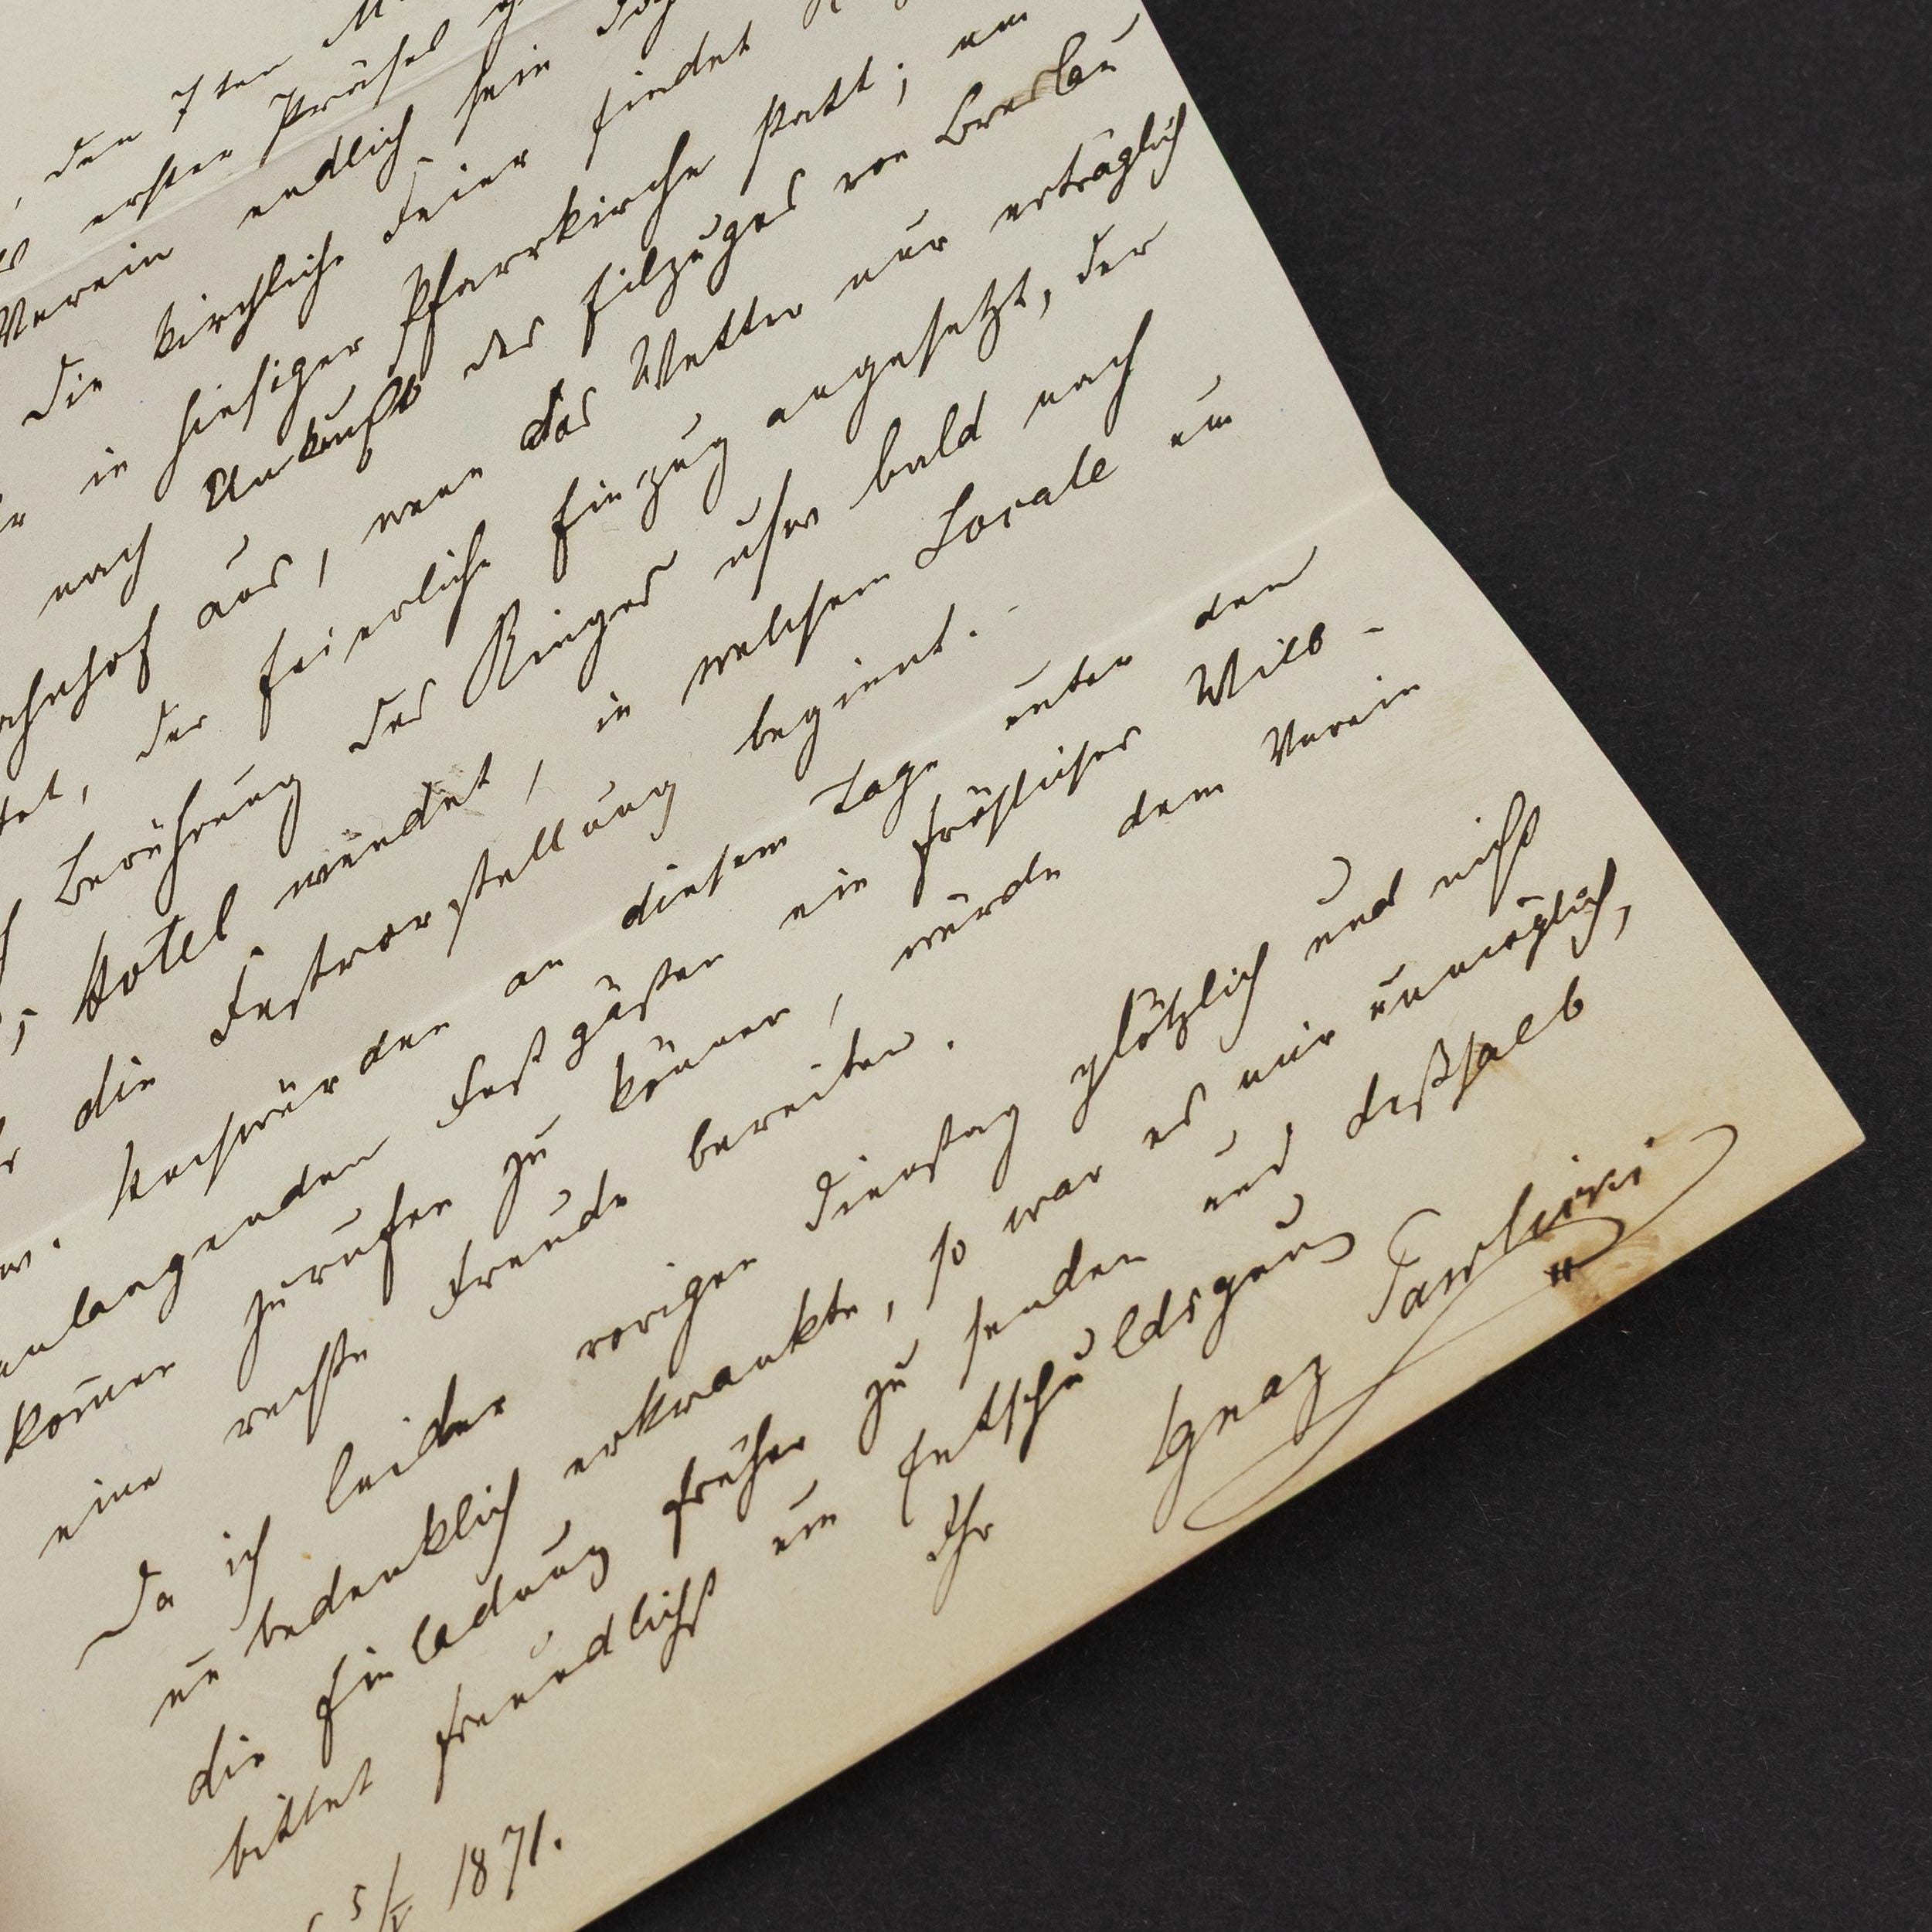 den 7ten M
ersten Präses
Verein endlich sein
die kirchliche Feier findet
in hiesiger Pfarrkirche statt; um
nach Ankunft des Eilzuges von Breslau
aus, wenn das Wetter nur erträglich
der feierliche Einzug angesetzt, der
Berührung des Ringes usw bald nach
Hotel mündet, in welchem Locale um
die Festvorstellung beginnt.
Hochwürden an diesem Tage unter den
anlangenden Festgästen ein fröhliches Will-
kom̅en zurufen zu können, würde dem Verein
eine rechte Freude bereiten.
Da ich leider vorigen Dienstag plötzlich und nicht
unbedenklich erkrankte, so war es mir unmöglich,
die Einladung früher zu senden und deßhalb
bittet freundlichst um Entschuldigung
Ihr Ignaz
5/V 1871.